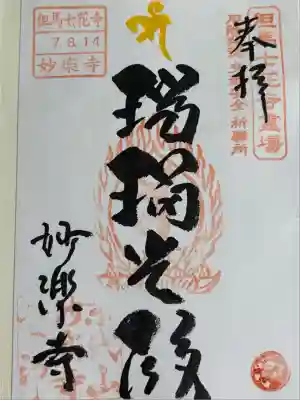 但馬七花寺霊場
奉拝
全祈願所
瑠璃光殿
但馬七花寺
7.8.14
妙楽寺
妙樂寺